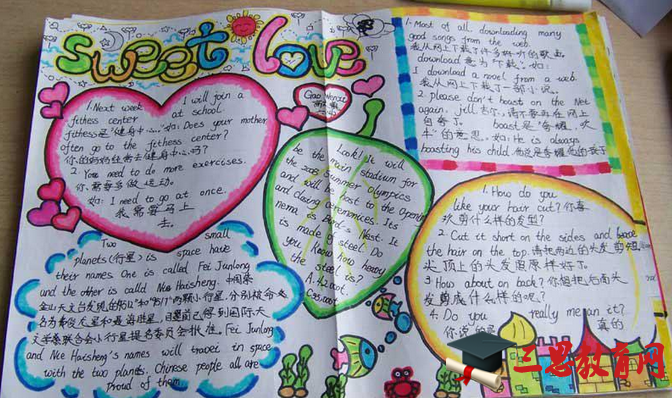 sweet love
1. Next week I will join a
fitness center at school.
fitness是"健身中心". 如: Does your mother
often go to the fitness center?
你的妈妈经常去健身中心吗?
2. You need to do more exercises.
你需要多做运动。
如: I need to go at once.
我需要马上
去。
Two small
planets (行星) in space have
their names One is called Fei Junlong
and the other is called Nie Haisheng. 中国
文学家联合会小行星提名委员会批准. Fei Junlong
and Nie Haisheng's names will travel in space
with the two planets. Chinese people all are
proud of them
Look! It will
be the main stadium for
the 2008 Summer Olympics
and will be host to the Opening
and Closing ceremonies. Its
nema is Bird-Nest. It
is made of steel Do
you know how heavy
the steel is?
A. 42.000t.
1. Most of all downloading many
good songs from the web.
我从网上下载了许多好听的歌曲
download 意为"下载". 如:
I download a novel from a web.
我从网上下载了一部小说。
2 please don't boast on the Net
again, jill
boast是"夸耀,吹
牛"的意思. 如: He is always
boasting his child.
1. How do you
like your hair cut? 你喜
欢剪什么样的发型?
2. Cut it short on the sides and
the hair on the top. 请把两边的头发剪短,
头顶上的头发留原样好了.
3 How about on back? 你想把后面头
发剪成什么样的呢?
4. Do you really mean it?
你说的是 真的
三思教育网